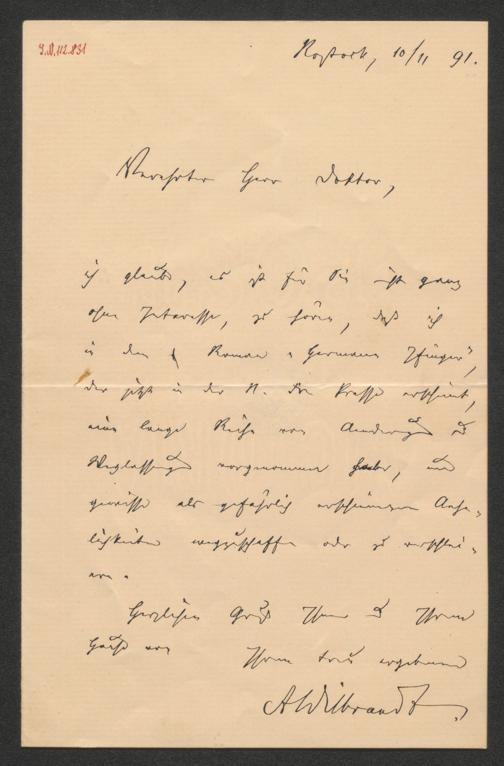 I.N. 112.831
Rostock, 10/11 91.
Verehrter Herr Doktor,
ich glaube, es ist für Sie nicht ganz
ohne Interesse, zu hören, daß ich
in dem Roman „Hermann Ifinger",
der jetzt in der N. Fr. Presse erscheint,
eine lange Reihe von Änderungen u
Weglassungen vorgenommen habe, um
gewisse als gefährlich erscheinende Aehn-
lichkeiten wegzuschaffen oder zu verschlei-
ern.
Herzlichen Gruß Ihnen u Ihrem
Hause von Ihrem treu ergebenen
AWilbrandt